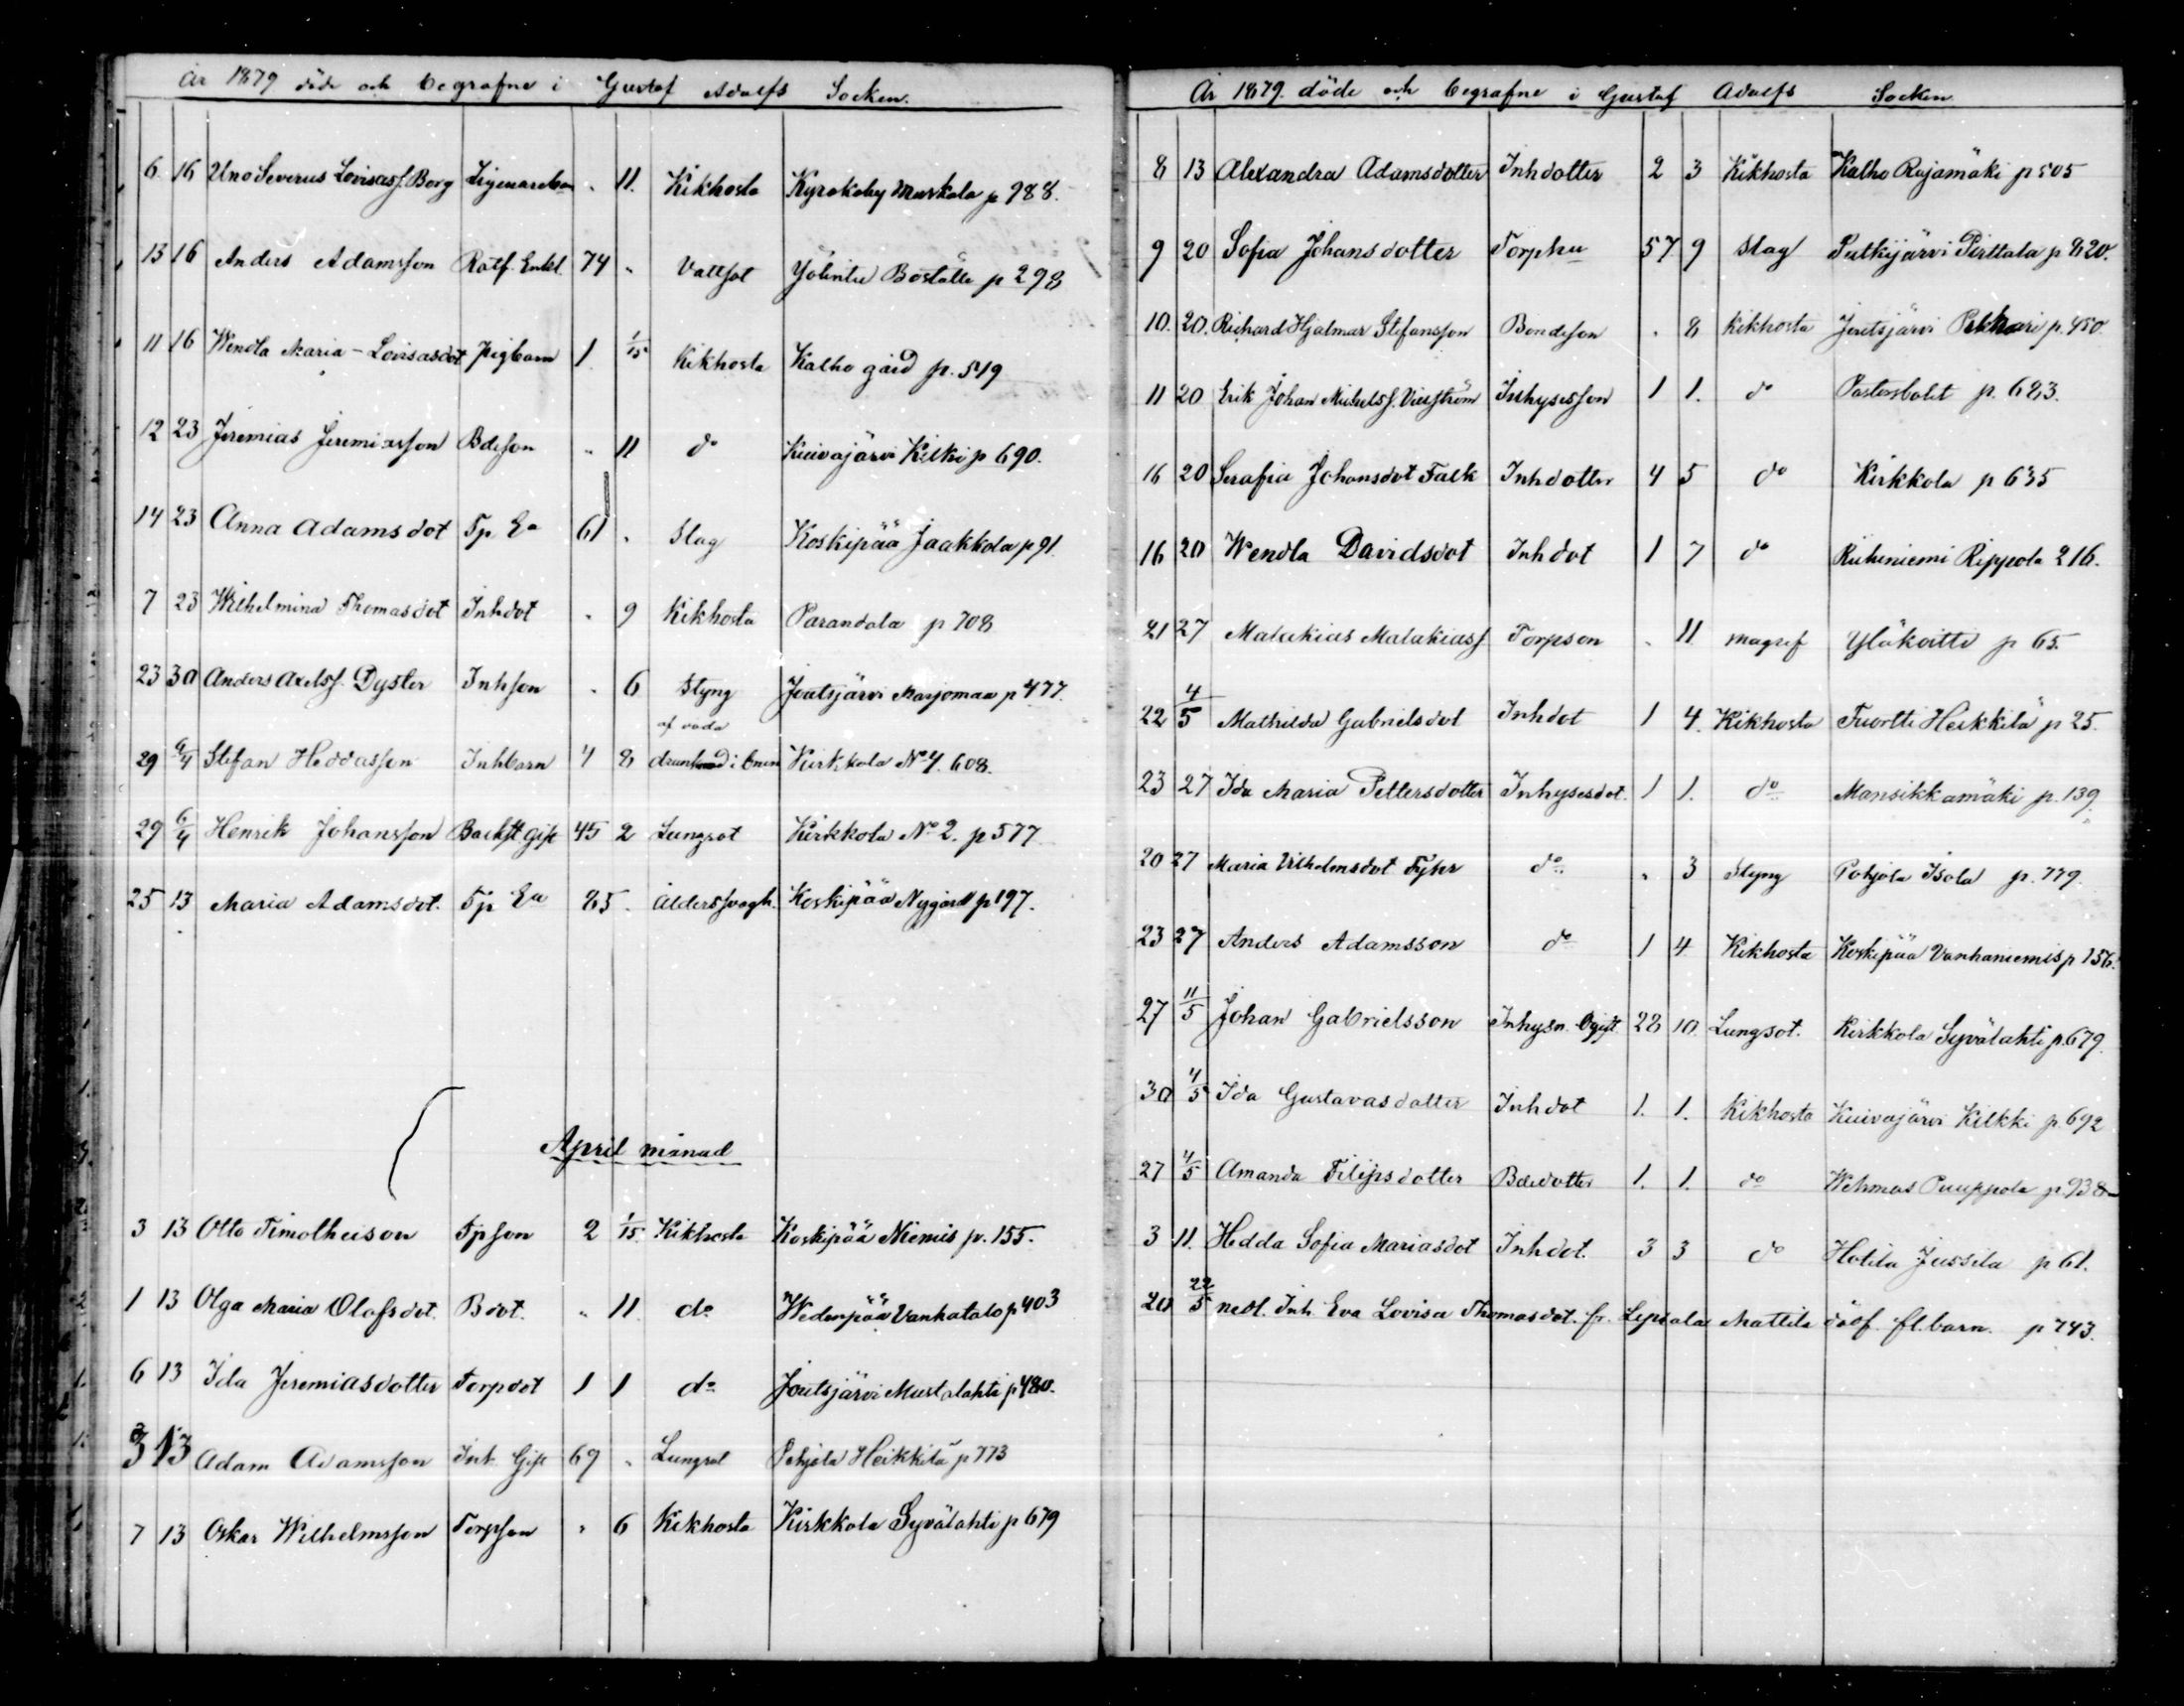 År 1879 döde och begrafne i Gustaf Adolfs Socken.
6 16 Uno Severus Lovisas f. Borg " 11. Kikhosta Kyrokoby Muskala p 988.
13 16 Anders Adamsson Rotf. Enkl. 74 " Vattsot Yölintu Boställe p 298
11 16 Wendla Maria - Lovisasdot pigbarn 1 1/15 Kikhosta Kalho gård p. 519
12 23 Jeremias Jeremiasson Bdeson " 11 do Kuivajärvi Kilki p 690.
14 23 Anna Adamsdot Tp Ea 61 " Slag Koskipää Jaakkola p 91.
7 23 Wilhelmina Thomasdot Inhdot " 9 Kikhosta Parandala p 708
23 30 Anders Axelsf. Dyster Inhson " 6 Styng Joutsjärvi Marjomaa p 477.
af våda
29 6/4 Stefan Heddasson Inhbarn 4 8 drunknad i brun Kirkkola No 4. 608.
29 6/4 Henrik Johansson Backst. gift 45 2 Lungsot Kirkkola No 2. p 577
25 13 Maria Adamsdot. Tp Ea 85 " Ålderssvagh. Koskipää Nygård p 197.
April månad
3 13 Otto Timotheison Tpson 2 1/15 Kikhosta Koskipää Niemis p. 155.
1 13 Olga Maria Olofsdot. Bdot. " 11. do Wedenpää Vanhatalo p 403
6 13 Ida Jeremiasdotter Torpdot 1 1 do Joutsjärvi Mustalahti p 480.
3 13 Adam Adamsson Inh. Gift 69 " Lungsot Pohjola Heikkilä p 773
7 13 Oskar Wilhelmsson Torpson " 6 Kikhosta Kirkkola Syvälahti p 679
År 1879. döde och begrafne i Gustaf Adolfs Socken
8 13 Alexandra Adamsdotter Inhdotter 2 3 Kikhosta Kalho Rajamäki p 505
9 20 Sofia Johansdotter Torphu 57 9 Slag Putkijärvi Pirttala p 820.
10. 20. Richard Hjalmar Stefansson Bondeson " 8 Kikhosta Joutsjärvi Pekkari p. 450.
11 20 Erik Johan Michelsf. Inhysesson 1 1. do Pastorsbolet p. 683.
16 20 Serafia Johansdot Falk Inhdotter 4 5 do Kirkkola p 635
16 20 Wendla Davidsdot Inhdot 1 7 do Ruhiniemi Rippola 216.
21 27 Malakias Malakiasf. Torpson " 11 magref Yläkoitti p 65.
22 4/5 Mathilda Gabrielsdot Inhdot 1 4. Kikhosta Tuortti Heikkilä p 25.
23 27 Ida Maria Pettersdotter Inhysesdot. 1 1. do Mansikkamäki p. 139
20 27 Maria Vilhelmsdot do " 3 Styng Pohjola Isola p. 779.
23 27 Anders Adamsson do 1 4 Kikhosta Koskipää Vanhaniemis p 156.
27 11/5 Johan Gabrielsson Inhysn Ogift 22 10. Lungsot. Kirkkola Syvälahti p. 679.
30 4/5 Ida Gustavasdatter Inhdot 1. 1. Kikhosta Kuivajärvi Kilkki p. 692
27 4/5 Amanda Filipsdotter Bdedotter 1. 1. do Wehmas Puuppola p. 938
3 11. Hedda Sofia Mariasdot Inhdot. 3 3 do Hotila Jussila p 61.
20 22/5 nedl. Inh. Eva Lovisa Thomasdot. fr. Lepsala Mattila död f. fl.barn. p 743.